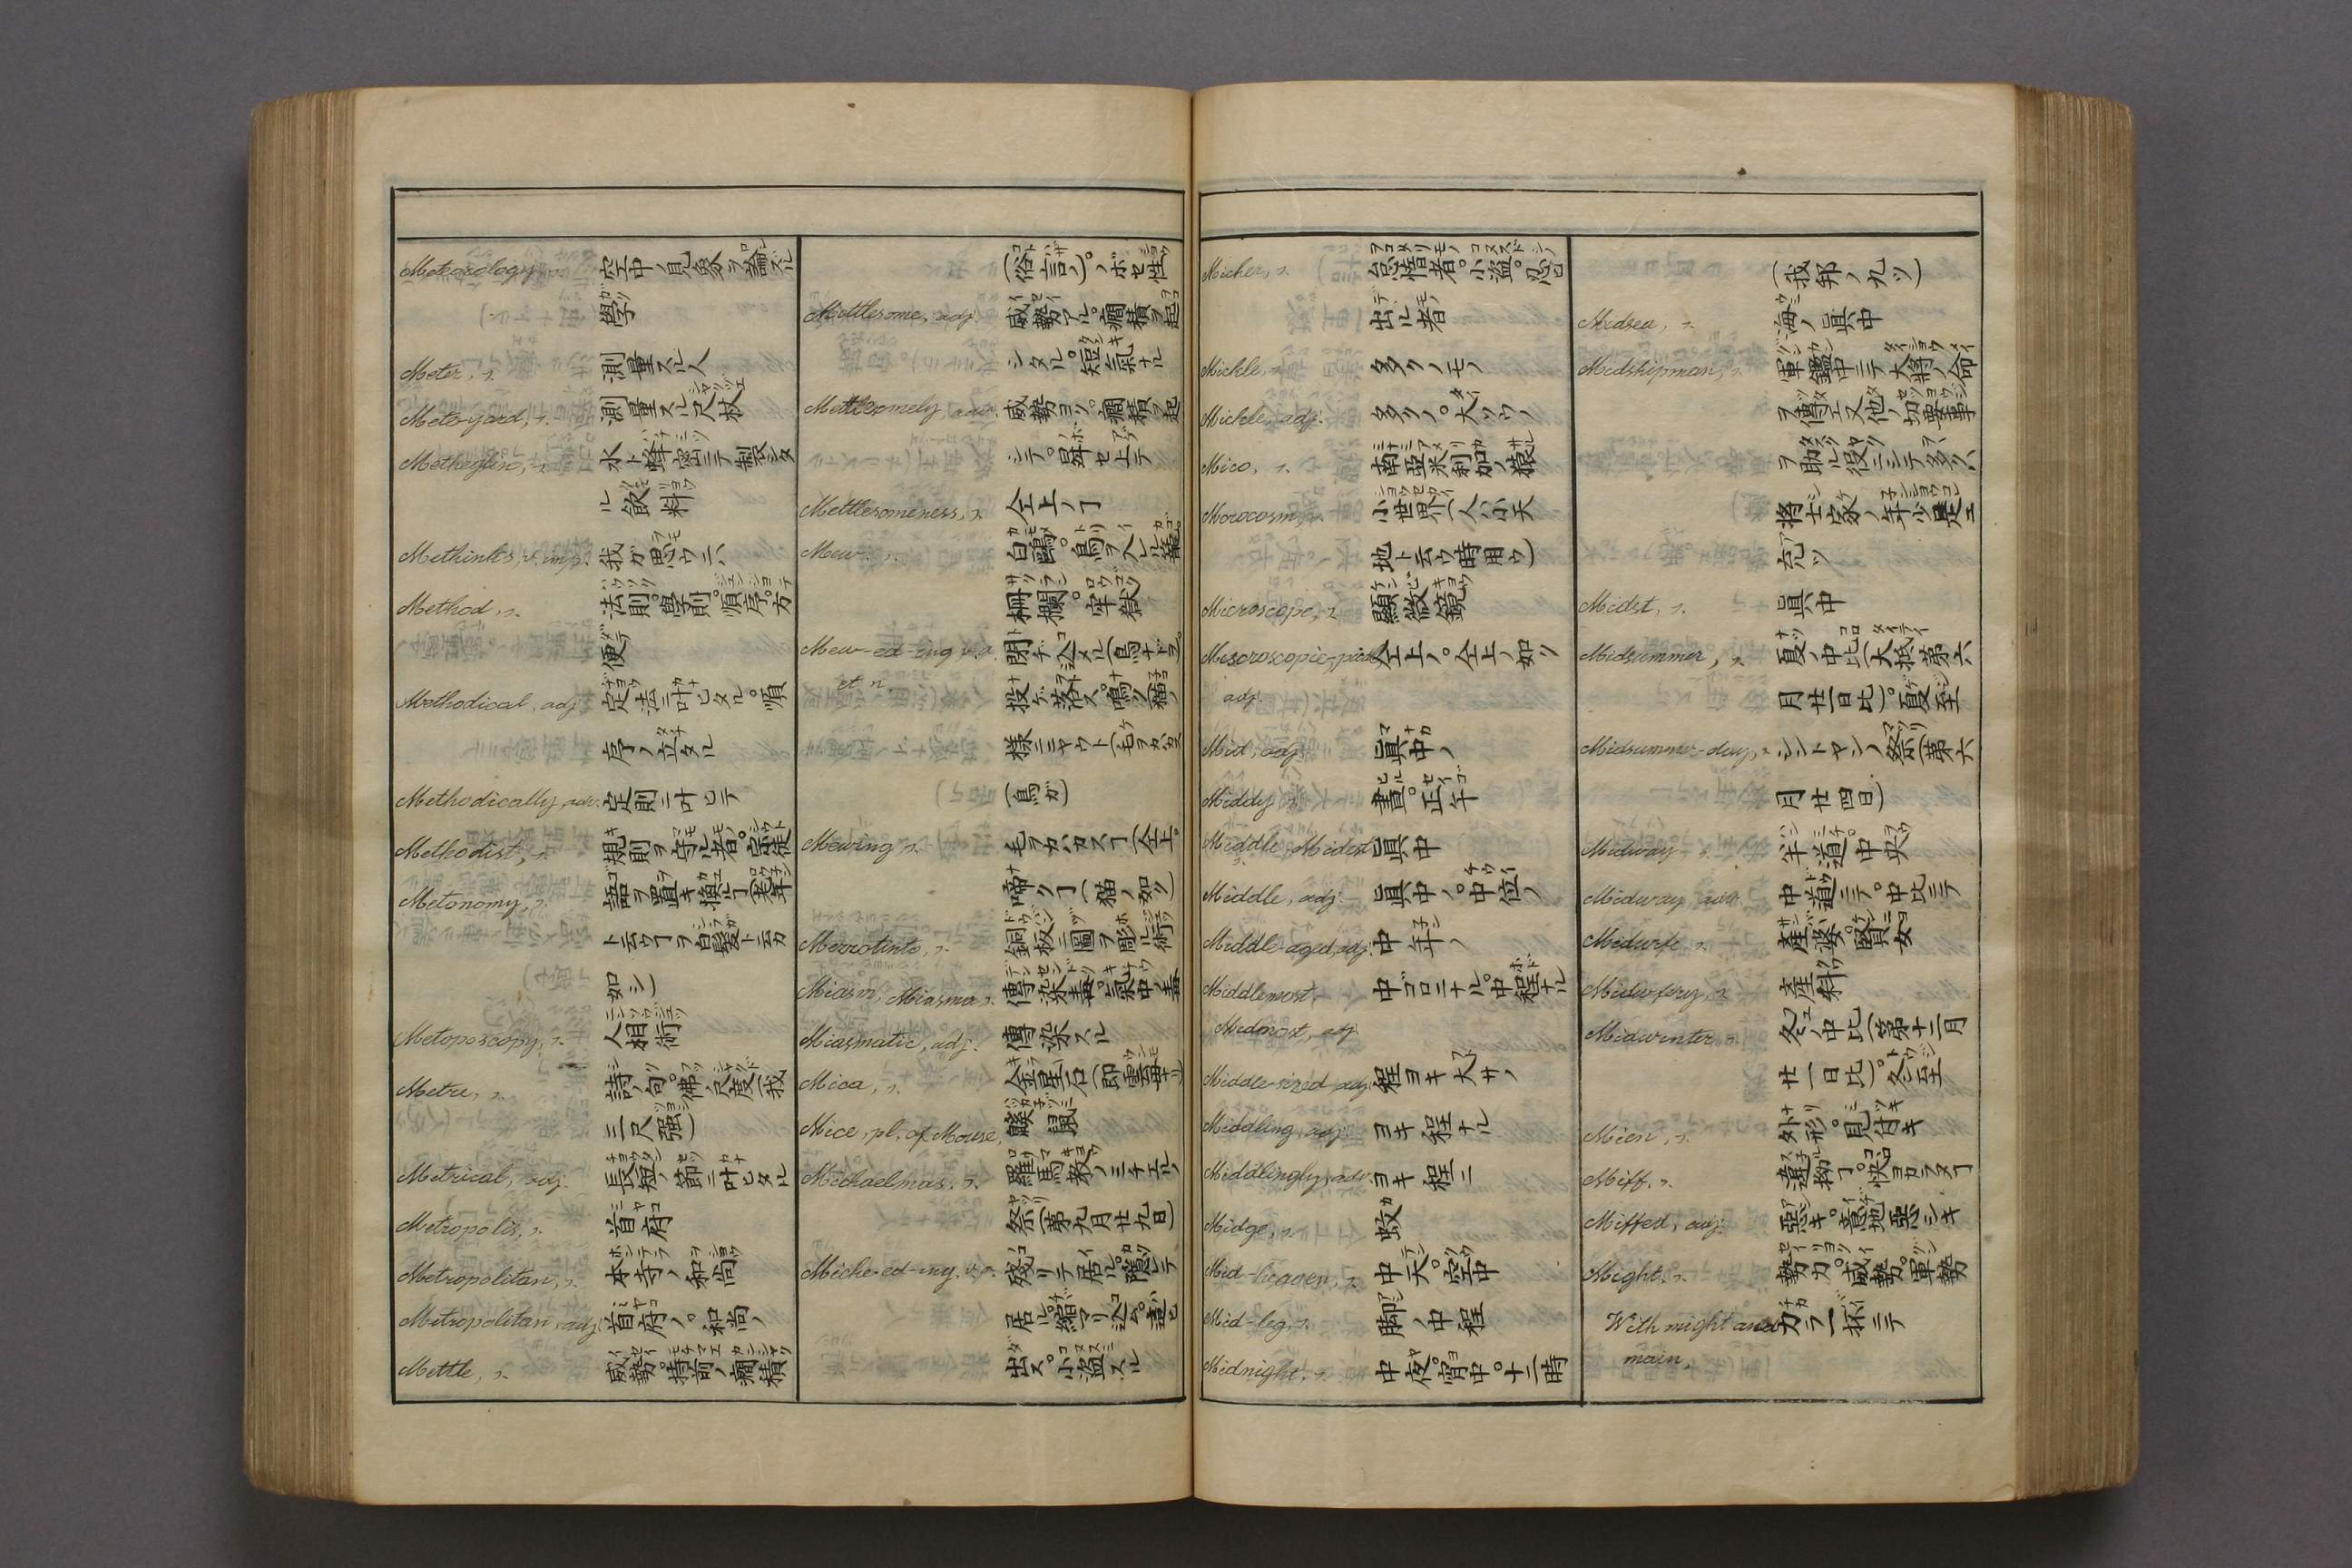 Meteorology, s. 空中ノ見象ヲ論スル
學
Meter, s. 測量スル人
Mete-yard, s. 測量スル尺杖
Metheglin, s. 水ト蜂密ニテ製シタ
ル飲料
Methinks, v. imp. 我ガ思ウニハ
Method, s. 法則。學則。順序。方
便
Methodical, adj. 定法ニ叶ヒタル。順
序ノ立タル
Methodically, adv. 定則ニ叶ヒテ
Methodist, s. 規則ヲ守ル者。宗徒
Metonomy, s. 語ヲ置キ換ルヿ(老年
ト云ウヿヲ白髪ト云カ
如シ)
Metoposcopy, s. 人相術
Metre, s. 詩ノ句。佛ノ尺度(我
三尺強)
Metrical, adj. 長短ノ節ニ叶ヒタル
Metropolis, s. 首府
Metropolitan, s. 本寺ノ和尚
Metropolitan, adj. 首府ノ。和尚ノ
Mettle, s. 威勢。持前ノ癇積
(俗言ノ)。ノボセ性
Mettlesome, adj. 威勢アル。癇積ヲ起
シタル。短氣ナル
Mettlesomely, adv. 威勢ヨク。癇積ヲ起
シテ。昇セ上テ
Mettlesomeness, s. 仝上ノヿ
Mew, s. 白鷗。鳥ヲ入ル籠。
柵欄。牢獄
Mew-ed-ing, v. a. 閉ヂ込メル(鳥ナドヲ)。
et n. 投ゲ落ス。鳴ク(猫ノ
様ニニャウト)毛ヲカハス
(鳥ガ)
Mewing, s. 毛ヲカハスヿ(仝上)。
啼クヿ(猫ノ如ク)
Mezzotinto, s. 銅板ニ圖ヲ彫ル術
Miasm, Miasma, s. 傳染毒。氣中ノ毒
Miasmatic, adj. 傳染スル
Mica, s. 金星石(即雲母)
Mice, pl. of Mouse, 鼷鼠
Michaelmas, s. 羅馬教ノミチエルノ
祭(第九月廿九日)
Miche-ed-ing, v. n. 殘リテ居ル。隱レテ
居ル。縮マリ込ム。
出ス。小盗スル
Micher, s. 怠惰者。小盗。忍ロ
出ル者
Mickle, s. 多クノモノ
Mickle, adj. 多クノ。大ヒウノ
Mico, s. 南亞米利加ノ猿
Microcosm, s. 小世界(人ハ小天
地ト云ウ時用ウ)
Microscope, s. 顯微鏡
Miscroscopic-pical, 仝上ノ。仝上ノ如ク
adj.
Mid, adj. 眞中ノ
Middy, s. 晝。正午
Middle, Midest, 眞中
s.
Middle, adj. 眞中ノ。中位ノ
Middle-aged, adj. 中年ノ
Middlemost, 中ゴロニナル。中程ナル
Midmost, adj.
Middle-sized, adj. 程ヨキ大サノ
Middling, adj. ヨキ程ナル
Middlingly, adv. ヨキ程ニ
Midge, s. 蚊
Mid-heaven, s. 中天。空中
Mid-leg, s. 脚ノ中程
Midnight, s. 中夜。宵中。十二時
(我邦ノ九ツ)
Midsea, s. 海ノ眞中
Midshipman, s. 軍鑑中ニテ大將ノ命
ヲ傳エ又他ノ切要事
ヲ助ル役ニシテ多クハ
將士家ノ年少是ニ
充ツ
Midst, s. 眞中
Midsummer, s. 夏ノ中比(大抵第六
月廿一日比)。夏至
Midsummer-day, s. シントヤンノ祭(第六
月廿四日)
Midway, s. 半道。中央
Midway, adv. 中道ニテ。中比ニテ
Midwife, s. 產婆。賢女
Midwifery, s. 產科
Midwinter, s. 冬ノ中比(第十二月
廿一日比)。冬至
Mien, s. 外形。見付キ
Miff, s. 違拗ヿ。快ヨカラヌヿ
Miffed, adj. 惡キ。意地惡シキ
Might, s. 勢力。威勢。軍勢
With might and 力ラ一抔ニテ
main,